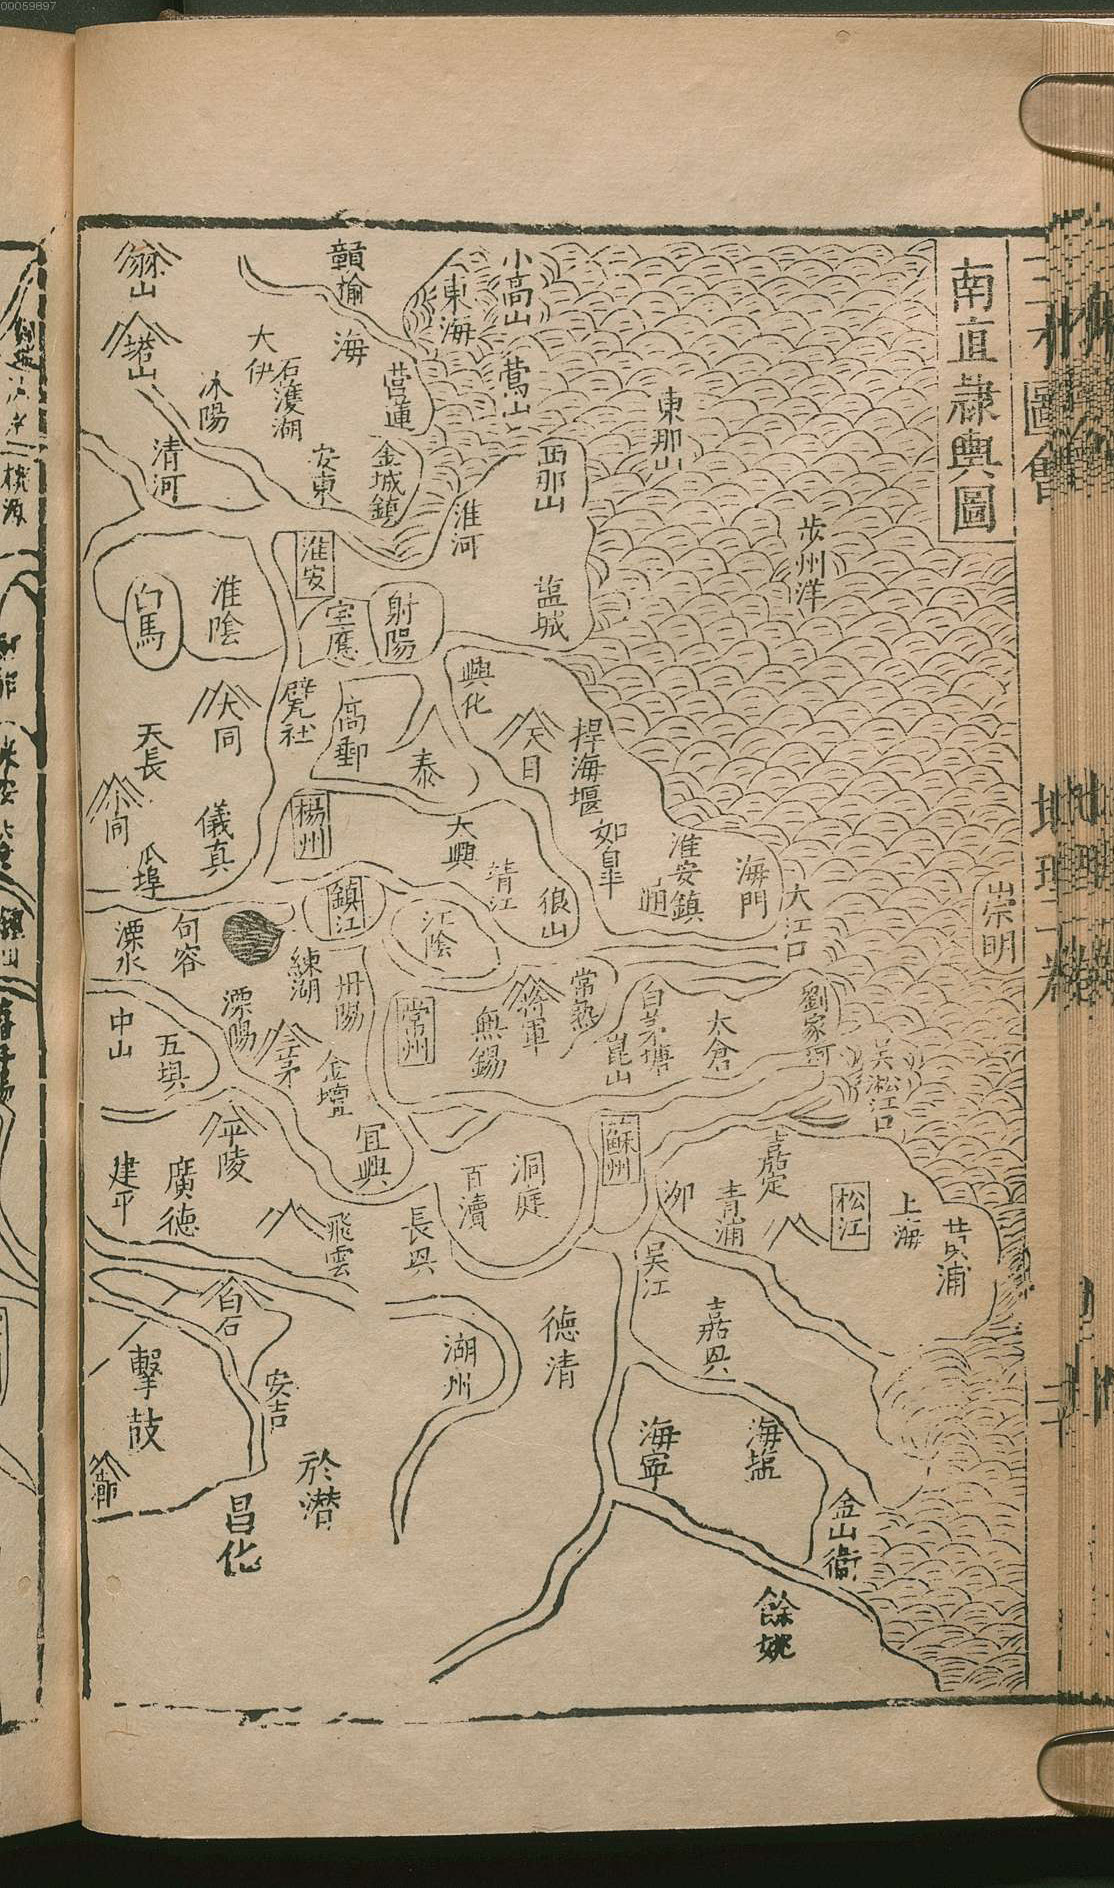 00059897
南直隷輿圖
崇明
小高山
鶯山
東那山
西那山
步州洋
東海
贛榆
海
营連
大伊
石濩湖
沭陽
安東
金城鎮
淮河
塩城
清河
淮安
淮陰
白馬
宝應
射陽
興化
天目
捍海堰
如皋
淮安鎮
通
海門
大江口
高郵
泰
甓社
大同
天長
小同
儀真
瓜埠
楊州
大興
靖江
狼山
鎮江
江陰
句容
溧水
練湖
丹陽
溧陽
三茅
中山
五堰
金壇
常州
無錫
将軍
常熟
白茅塘
崑山
太倉
劉家河
吴淞江口
平陵
宜興
建平
廣德
飛雲
長興
百瀆
洞庭
蘇州
泖
青浦
嘉定
松江
上海
吴江
嘉興
德清
湖州
白石
安吉
擊鼓
於潜
昌化
海寧
海塩
金山衛
餘姚